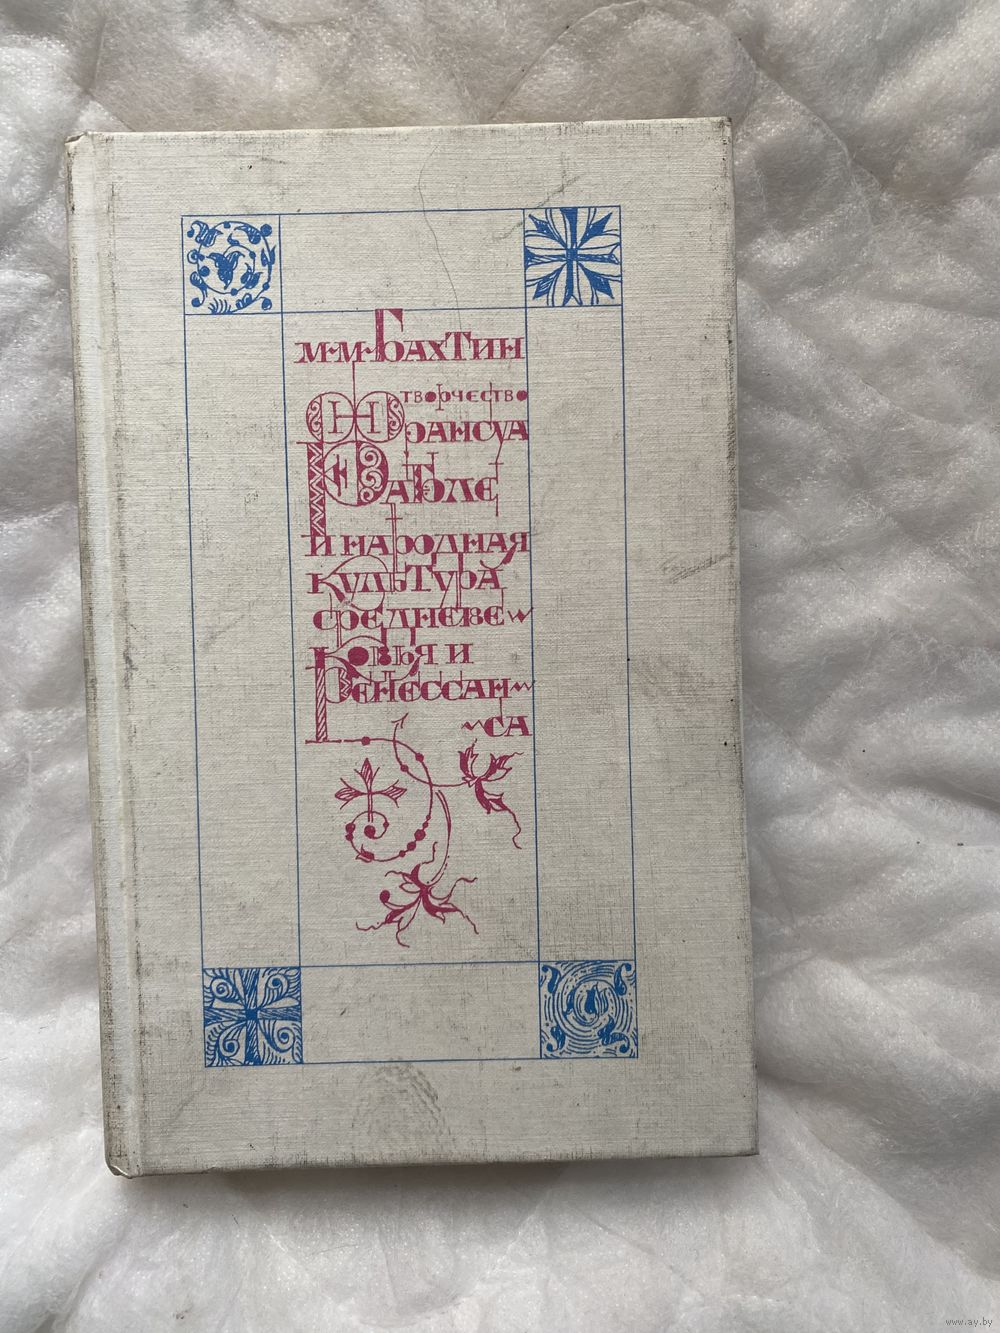 М·М·БАХТИН
ТВОРЧЕСТВО
ФРАНСУА
РАБЛЕ
И НАРОДНАЯ
КУЛЬТУРА
СРЕДНЕВЕ
КОВЬЯ И
РЕНЕССАН
СА
www.ay.by